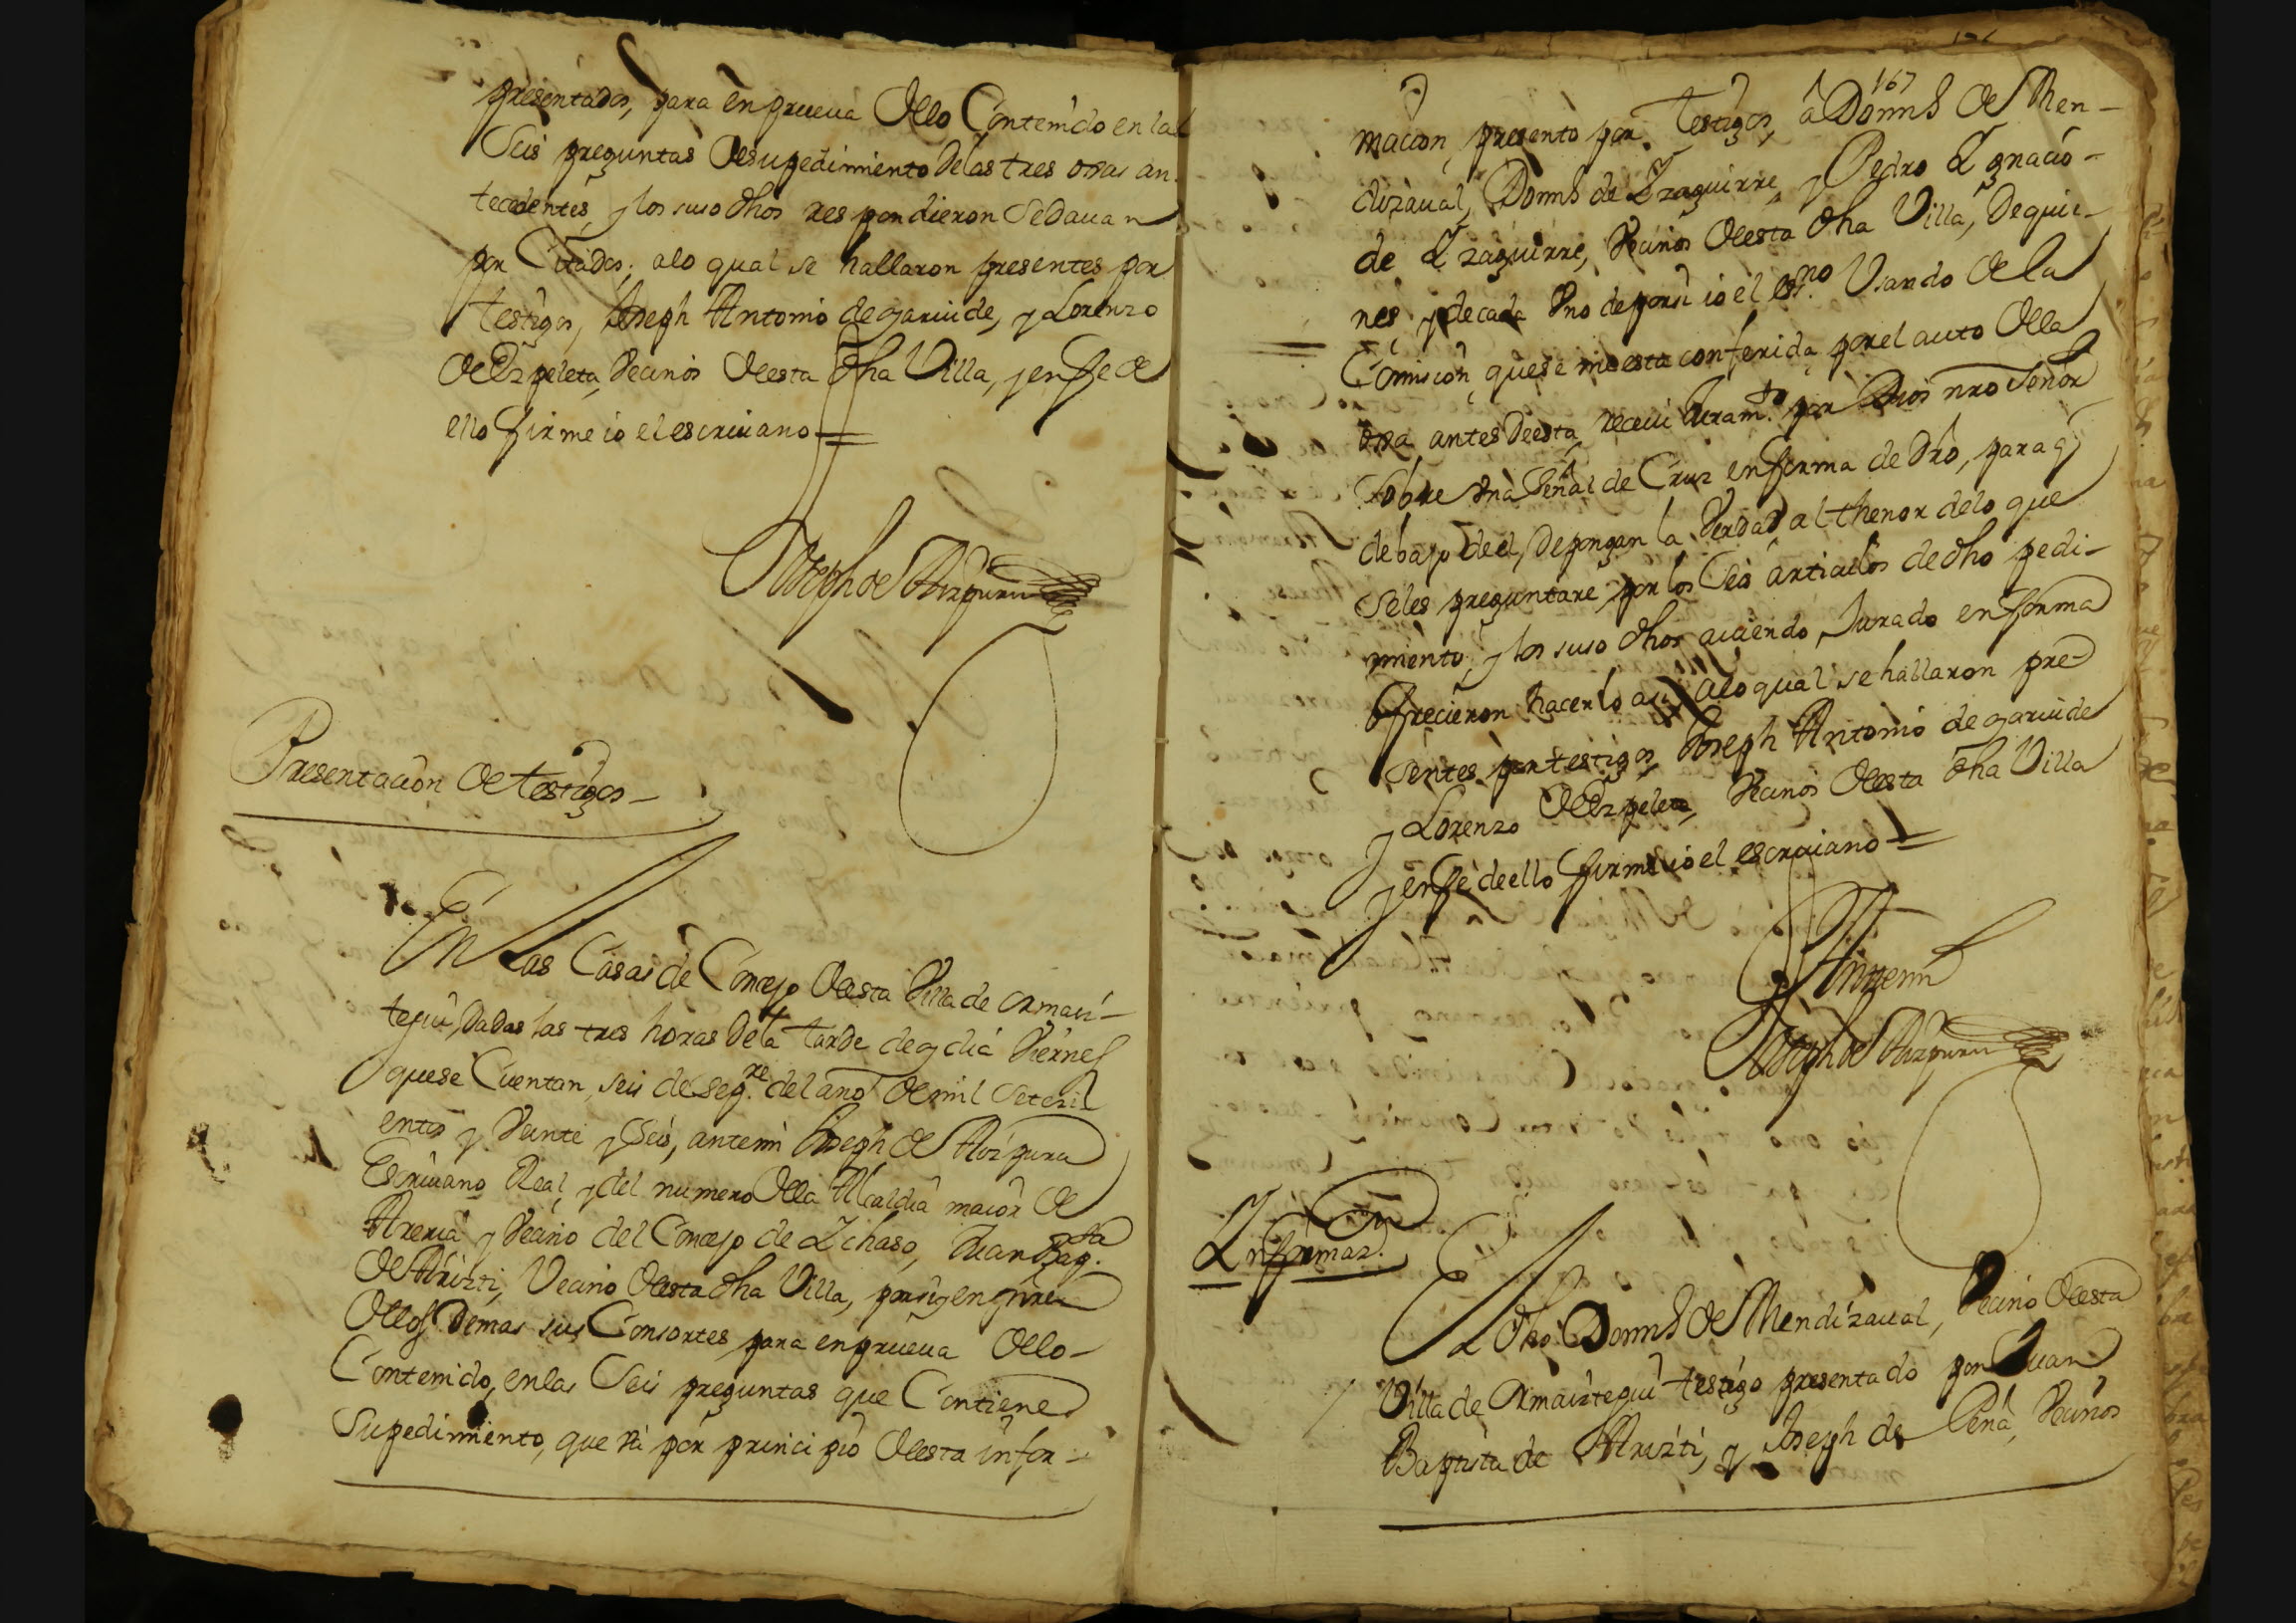 presentados, para en prueua dello Contenido en las
Seis preguntas de su pedimiento de las tres ojas an-
tecedentes, y los suso dhos respondieron se dauan
por Citados; a lo qual se hallaron presentes por
testigos, Joseph Antonio de garuide, y Lorenzo
de Ezpeleta, Vecinos desta dha Villa, y en fe de
ello firme io el escriuano
Joseph de Aizpuru
Presentacion de testigos
En las Casas de Concejo desta Villa de Ormaiz-
tegui, dadas las tres horas de la tarde de oy dia Viernes
que se Cuentan, seis de Sep.re del año de mil Seteci-
entos y Veinte y Seis, ante mi Joseph de Aizpuru
Escriuano Real, y del numero de la Alcaldia maior de
Areria y Vecino del Concejo de Ichaso, Juan Bap.ta
de Arizti, Vecino desta dha Villa, por sí y en nre
de los demas sus Consortes, para en prueua dello
Contenido, en las Seis preguntas que Contiene
Su pedimiento, que va por principio desta infor-
167
macion, presento por testigos, a Domns de Men-
dizaual, Domns de Yzaguirre, y Pedro Ygnacio
de Yzaguirre, Vecinos desta dha Villa, de quie-
nes y de cada Vno de por si io el es.no Usando de la
Comision que se me esta conferida por el auto de la
oja antes de esta, receui Juram.to por Dios nro Señor
sobre Vna Señal de Cruz en forma de dro, para q
debajo de el, depongan la Verdad al thenor de lo que
Se les preguntare por los Seis articulos de dho pedi-
miento, y los suso dhos auiendo Jurado en forma
Ofrecieron hacerlo asi, a lo qual se hallaron pre-
sentes por testigos, Joseph Antonio de garuide
y Lorenzo de Ezpeleta, Vecinos desta dha Villa
y en fe de ello firme io el escriuano
Ante mi
Joseph de Aizpuru
Ynformaz.on
El dho Domns de Mendizaual, Vecino desta
Villa de Ormaiztegui testigo presentado por Juan
Baptista de Arizti, y Joseph de Peña, Vecinos